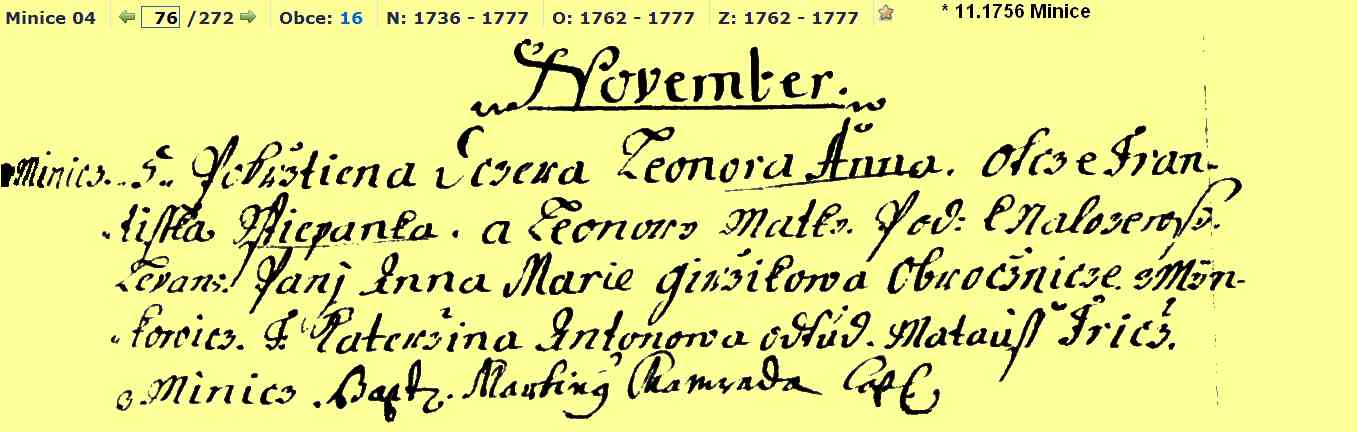 Minice 04 76 /272 Obce: 16 N: 1736 - 1777 O: 1762 - 1777 Z: 1762 - 1777 * 11.1756 Minice
November.
Minicz. 5. Pokrżtiena Dczera Leonora Anna. Otcze Fran-
tisska Sstiepanka. a Leonory Matky. Pod: k Nalozewss.
Levans: Panj Anna Marie Girżikowa Obrocżnicze z Myn-
kowicz. T. Katerżina Antonowa odtud. Matauss Fricż.
z Minicz. Baptz. Martiny Kamrada Cap